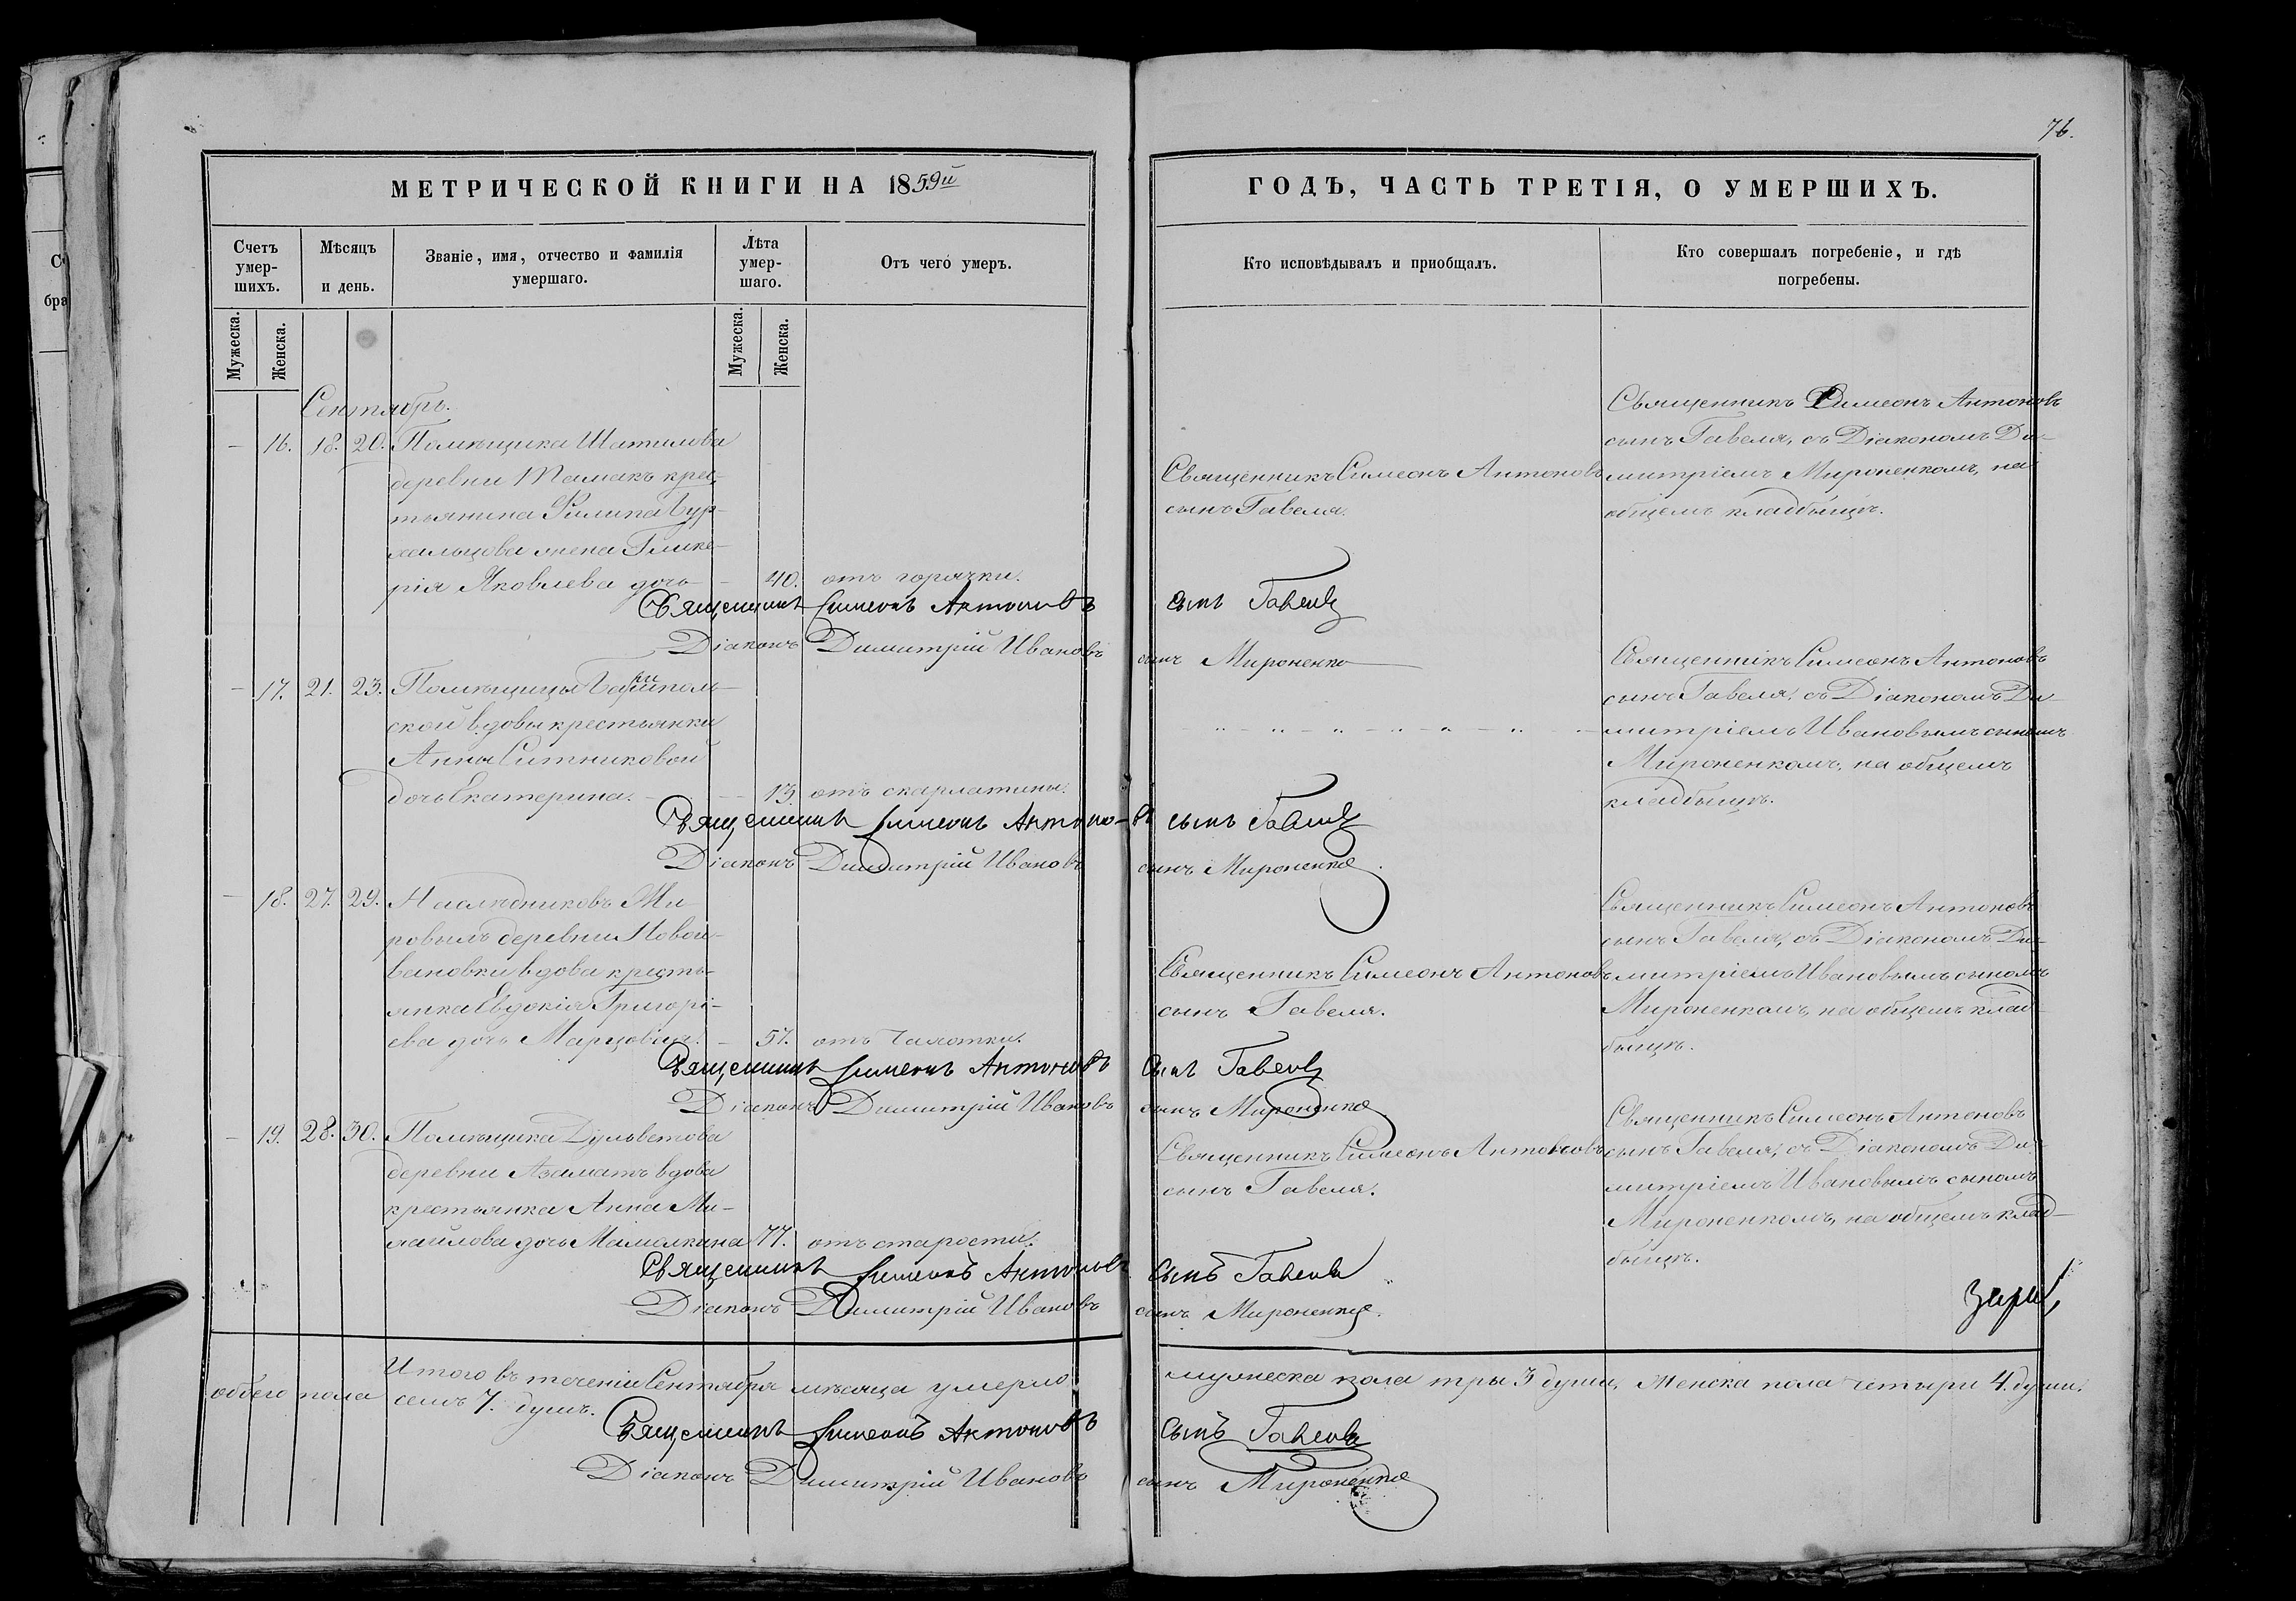 76.
МЕТРИЧЕСКОЙ КНИГИ НА 1859й
ГОДЪ, ЧАСТЬ ТРЕТІЯ, О УМЕРШИХЪ.
Счетъ умер-шихъ.
Мѣсяцъ и день.
Званіе, имя, отчество и фамилія умершаго.
Лѣта умер-шаго.
Отъ чего умеръ.
Кто исповѣдывалъ и приобщалъ.
Кто совершалъ погребеніе, и гдѣ погребены.
Мужеска.
Женска.
Мужеска.
Женска.
Сентябрь.
— 16. 18. 20. Помѣщика Шатилова
деревни Тамакъ крес-
тьянина Филипа Бур-
хальцова жена Глике-
рія Яковлева дочь — 40. отъ горячки.
Священникъ Симеонъ Антоновъ
сынъ Гавеля.
Священникъ Симеонъ Антоновъ
сынъ Гавеля, съ Діакономъ Ди-
митріемъ Мироненкомъ, на
общемъ кладбищѣ.
Священникъ Симеонъ Антоновъ сынъ Гавеля
Діаконъ Димитрій Ивановъ сынъ Мироненко
— 17. 21. 23. Помѣщицы
ской вдовы крестьянки
Анны Ситниковой
дочь Екатерина. — 13. отъ скарлатины.
Священникъ Симеонъ Антоновъ
сынъ Гавеля, съ Діакономъ Ди-
митріемъ Ивановымъ сыномъ
Мироненкомъ, на общемъ
кладбищѣ.
Священникъ Симеонъ Антоновъ сынъ Гавеля
Діаконъ Димитрій Ивановъ сынъ Мироненко
— 18. 27. 29. Наслѣдниковъ Ми-
ровыхъ деревни Новои-
вановки вдова кресть-
янка Евдокія Григорі-
ева дочь — 57. отъ чахотки.
Священникъ Симеонъ Антоновъ
сынъ Гавеля.
Священникъ Симеонъ Антоновъ
сынъ Гавеля, съ Діакономъ Ди-
митріемъ Ивановымъ сыномъ
Мироненкомъ, на общемъ клад-
бищѣ.
Священникъ Симеонъ Антоновъ сынъ Гавеля
Діаконъ Димитрій Ивановъ сынъ Мироненко
— 19. 28. 30. Помѣщика Дульветова
деревни Азаматъ вдова
крестьянка Анна Ми-
хайлова дочь Мамалкина 77. отъ старости.
Священникъ Симеонъ Антоновъ
сынъ Гавеля.
Священникъ Симеонъ Антоновъ
сынъ Гавеля, съ Діакономъ Ди-
митріемъ Ивановымъ сыномъ
Мироненкомъ, на общемъ клад-
бищѣ.
Священникъ Симеонъ Антоновъ сынъ Гавеля
Діаконъ Димитрій Ивановъ сынъ Мироненко.
Итого въ теченіи Сентября мѣсяца умерло мужеска пола три 3 души, Женска пола четыри 4. души.
обоего пола семь 7. душъ.
Священникъ Симеонъ Антоновъ сынъ Гавеля
Діаконъ Димитрій Ивановъ сынъ Мироненко